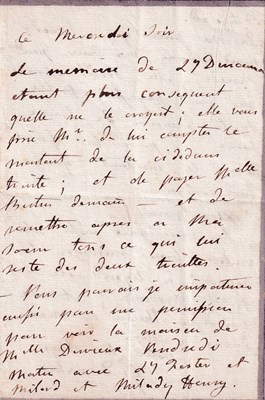 ce Mercredi Soir
Le memoire de Ly Duncannon
etant plus consequent
quelle ne le croyait; elle vous
prie Mr. de lui compter le
montant de la cidedans
traite; et de payer Melle
Bertin demain — et de
remettre apres a Mai
soem tous ce qui lui
reste des deux traittes.
— Vous pourais je importuner
aussi pour une permission
pour voir la maison de
Melle Dervieux Vendredi
Matin avec Ly Jester et
Milord et Milady Henry.